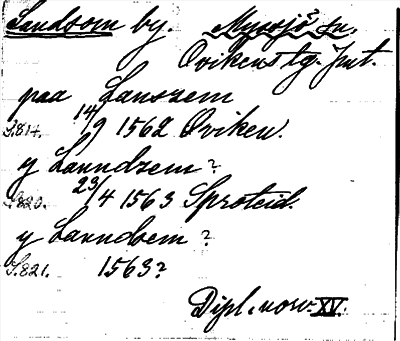 Landsom by. Myssjö sn.
Ovikens tg. Jmt.
paa Lanszem
S.814. 14/9 1562 Oviken.
y Lanndzem?
S.820. 23/4 1563 Sproteid.
y Lanndsem?
S.821. 1563?
Dipl. norv. XV.